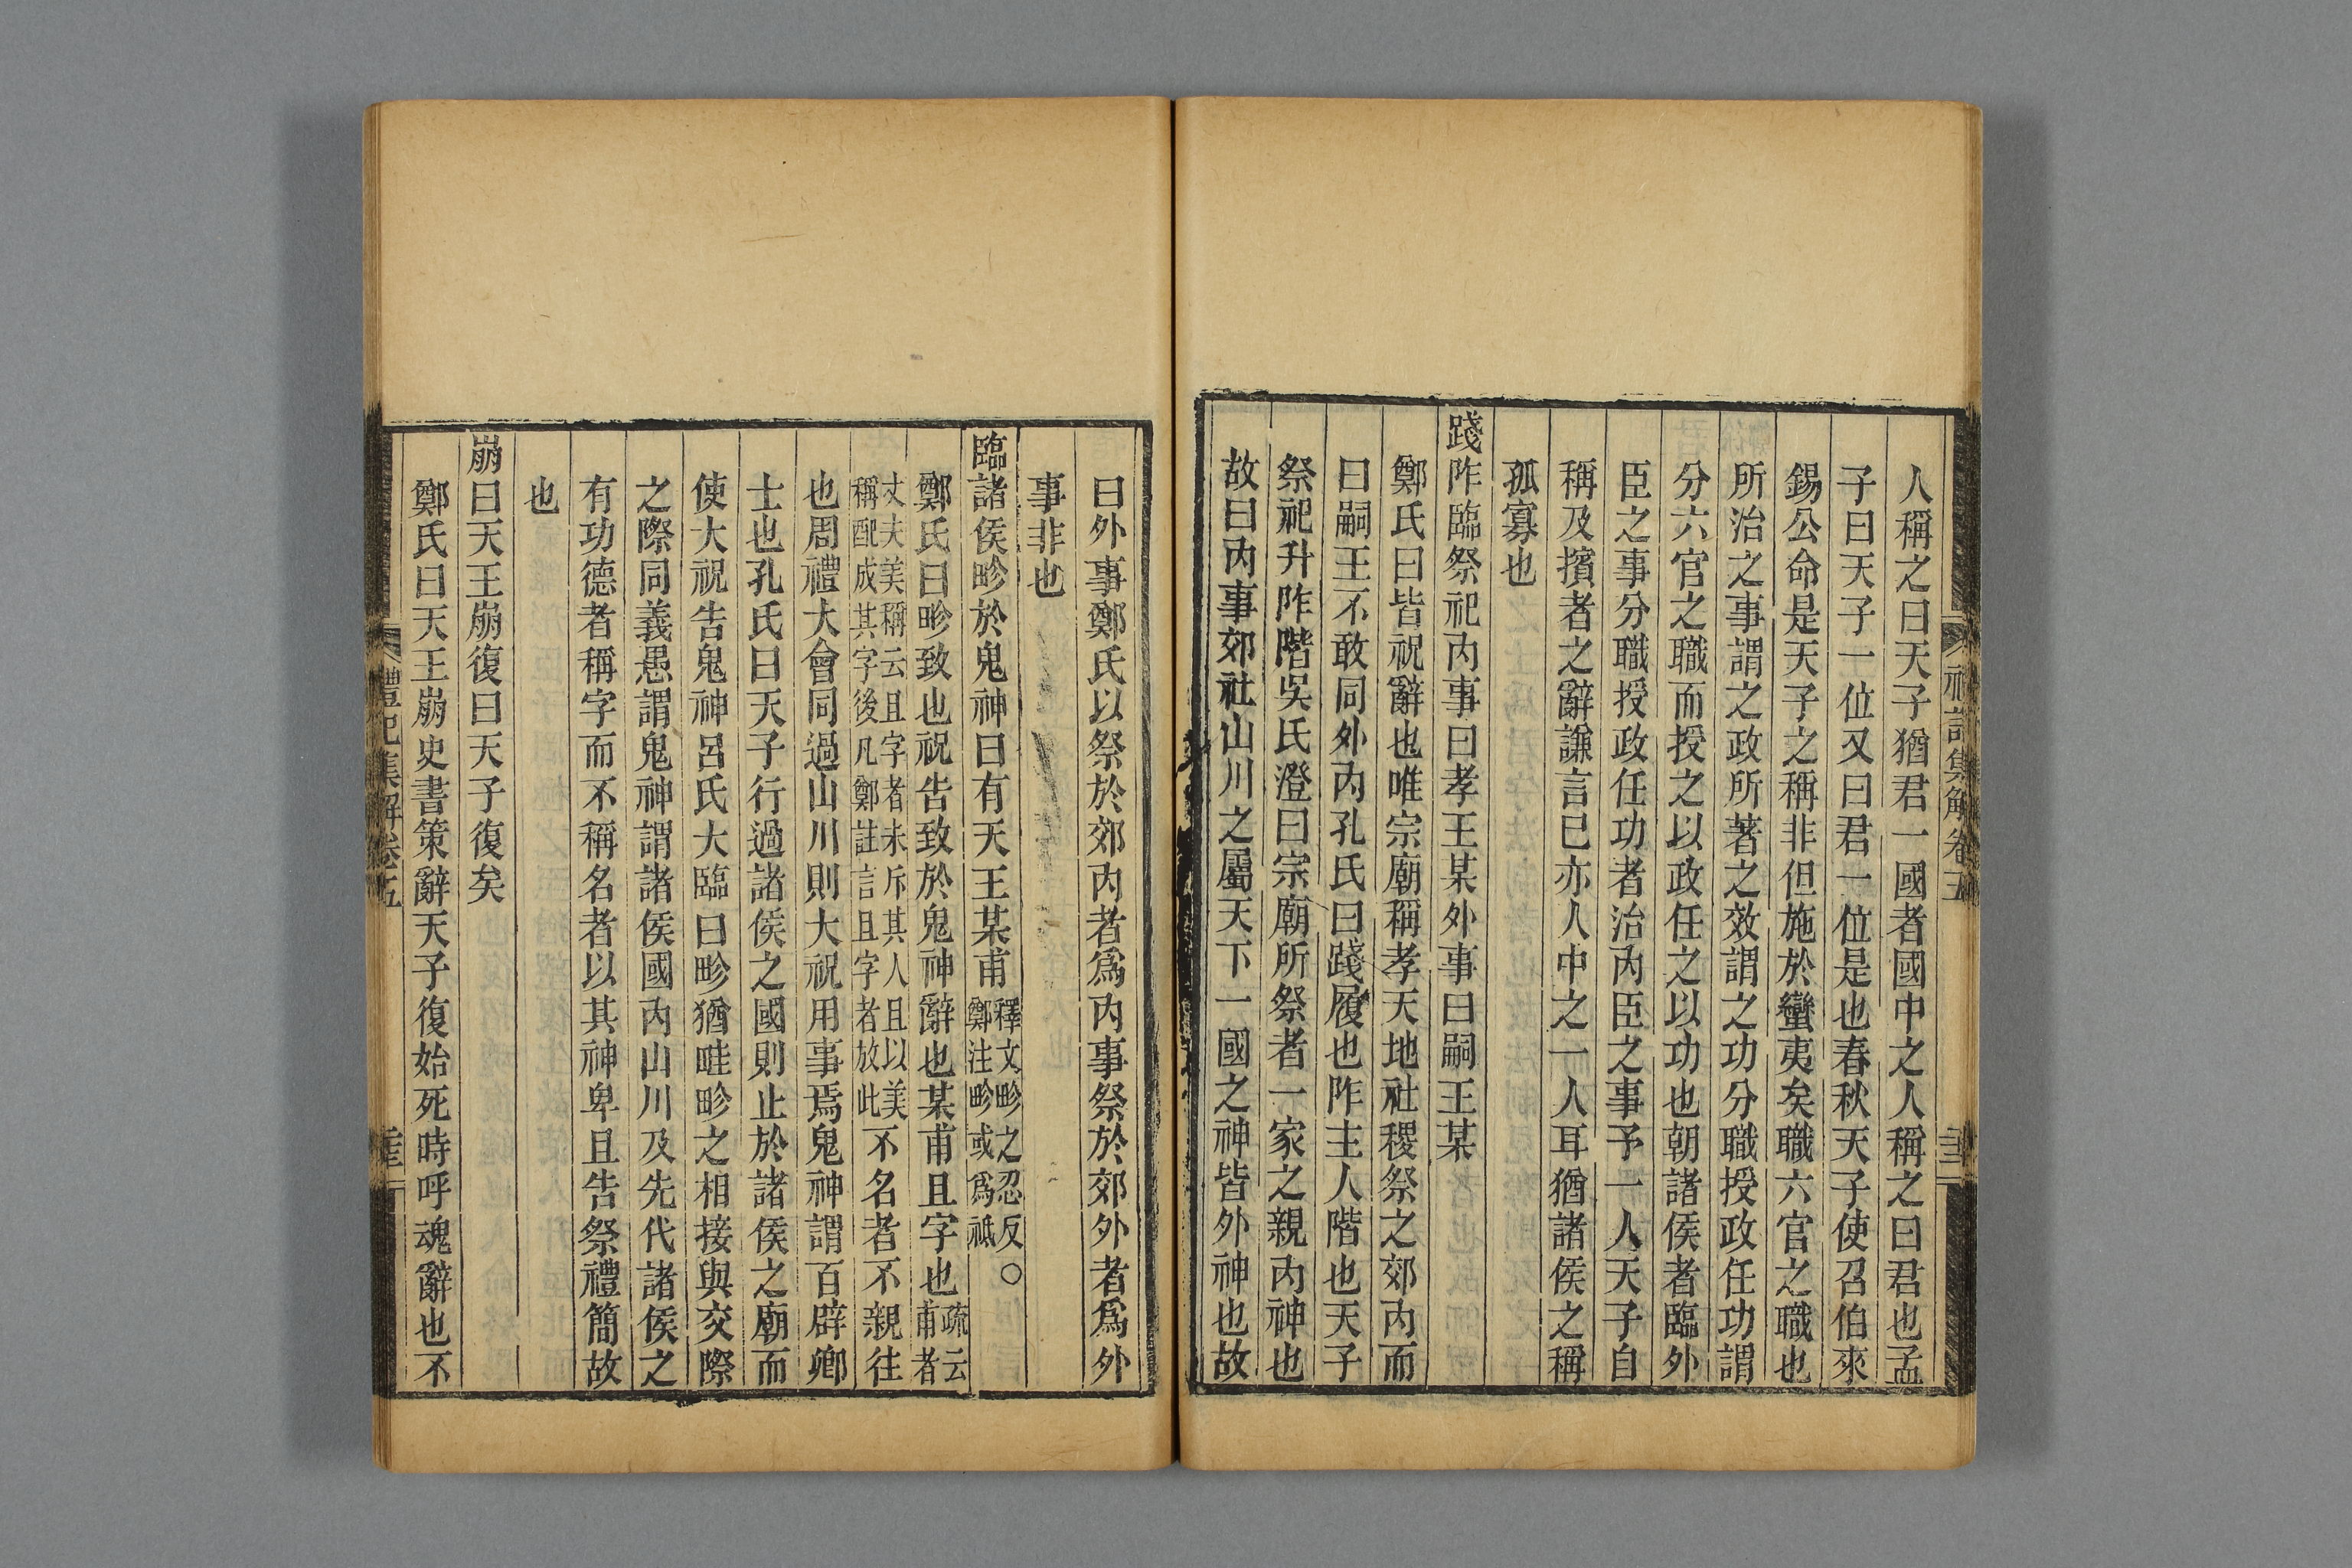 禮記集解卷五
人稱之曰天子猶君一國者國中之人稱之曰君也孟
子曰天子一位又曰君一位是也春秋天子使召伯來
錫公命是天子之稱非但施於蠻夷矣職六官之職也
所治之事謂之政所著之效謂之功分職授政任功謂
分六官之職而授之以政任之以功也朝諸侯者臨外
臣之事分職授政任功者治內臣之事予一人天子自
稱及擯者之辭謙言已亦人中之一人耳猶諸侯之稱
孤寡也
踐阼臨祭祀內事曰孝王某外事曰嗣王某
鄭氏曰皆祝辭也唯宗廟稱孝天地社稷祭之郊內而
曰嗣王不敢同外內孔氏曰踐履也阼主人階也天子
祭祀升阼階吳氏澄曰宗廟所祭者一家之親內神也
故曰內事郊社山川之屬天下一國之神皆外神也故
曰外事鄭氏以祭於郊內者爲內事祭於郊外者爲外
事非也
臨諸侯畛於鬼神曰有天王某甫釋文畛之忍反○
鄭注畛或爲祗
鄭氏曰畛致也祝告致於鬼神辭也某甫且字也疏云
甫者
丈夫美稱云且字者未斥其人且以美
稱配成其字後凡鄭註言且字者放此不名者不親往
也周禮大會同過山川則大祝用事焉鬼神謂百辟卿
士也孔氏曰天子行過諸侯之國則止於諸侯之廟而
使大祝告鬼神呂氏大臨曰畛猶畦畛之相接與交際
之際同義愚謂鬼神謂諸侯國內山川及先代諸侯之
有功德者稱字而不稱名者以其神卑且告祭禮簡故
也
崩曰天王崩復曰天子復矣
鄭氏曰天王崩史書策辭天子復始死時呼魂辭也不
禮記集解卷五